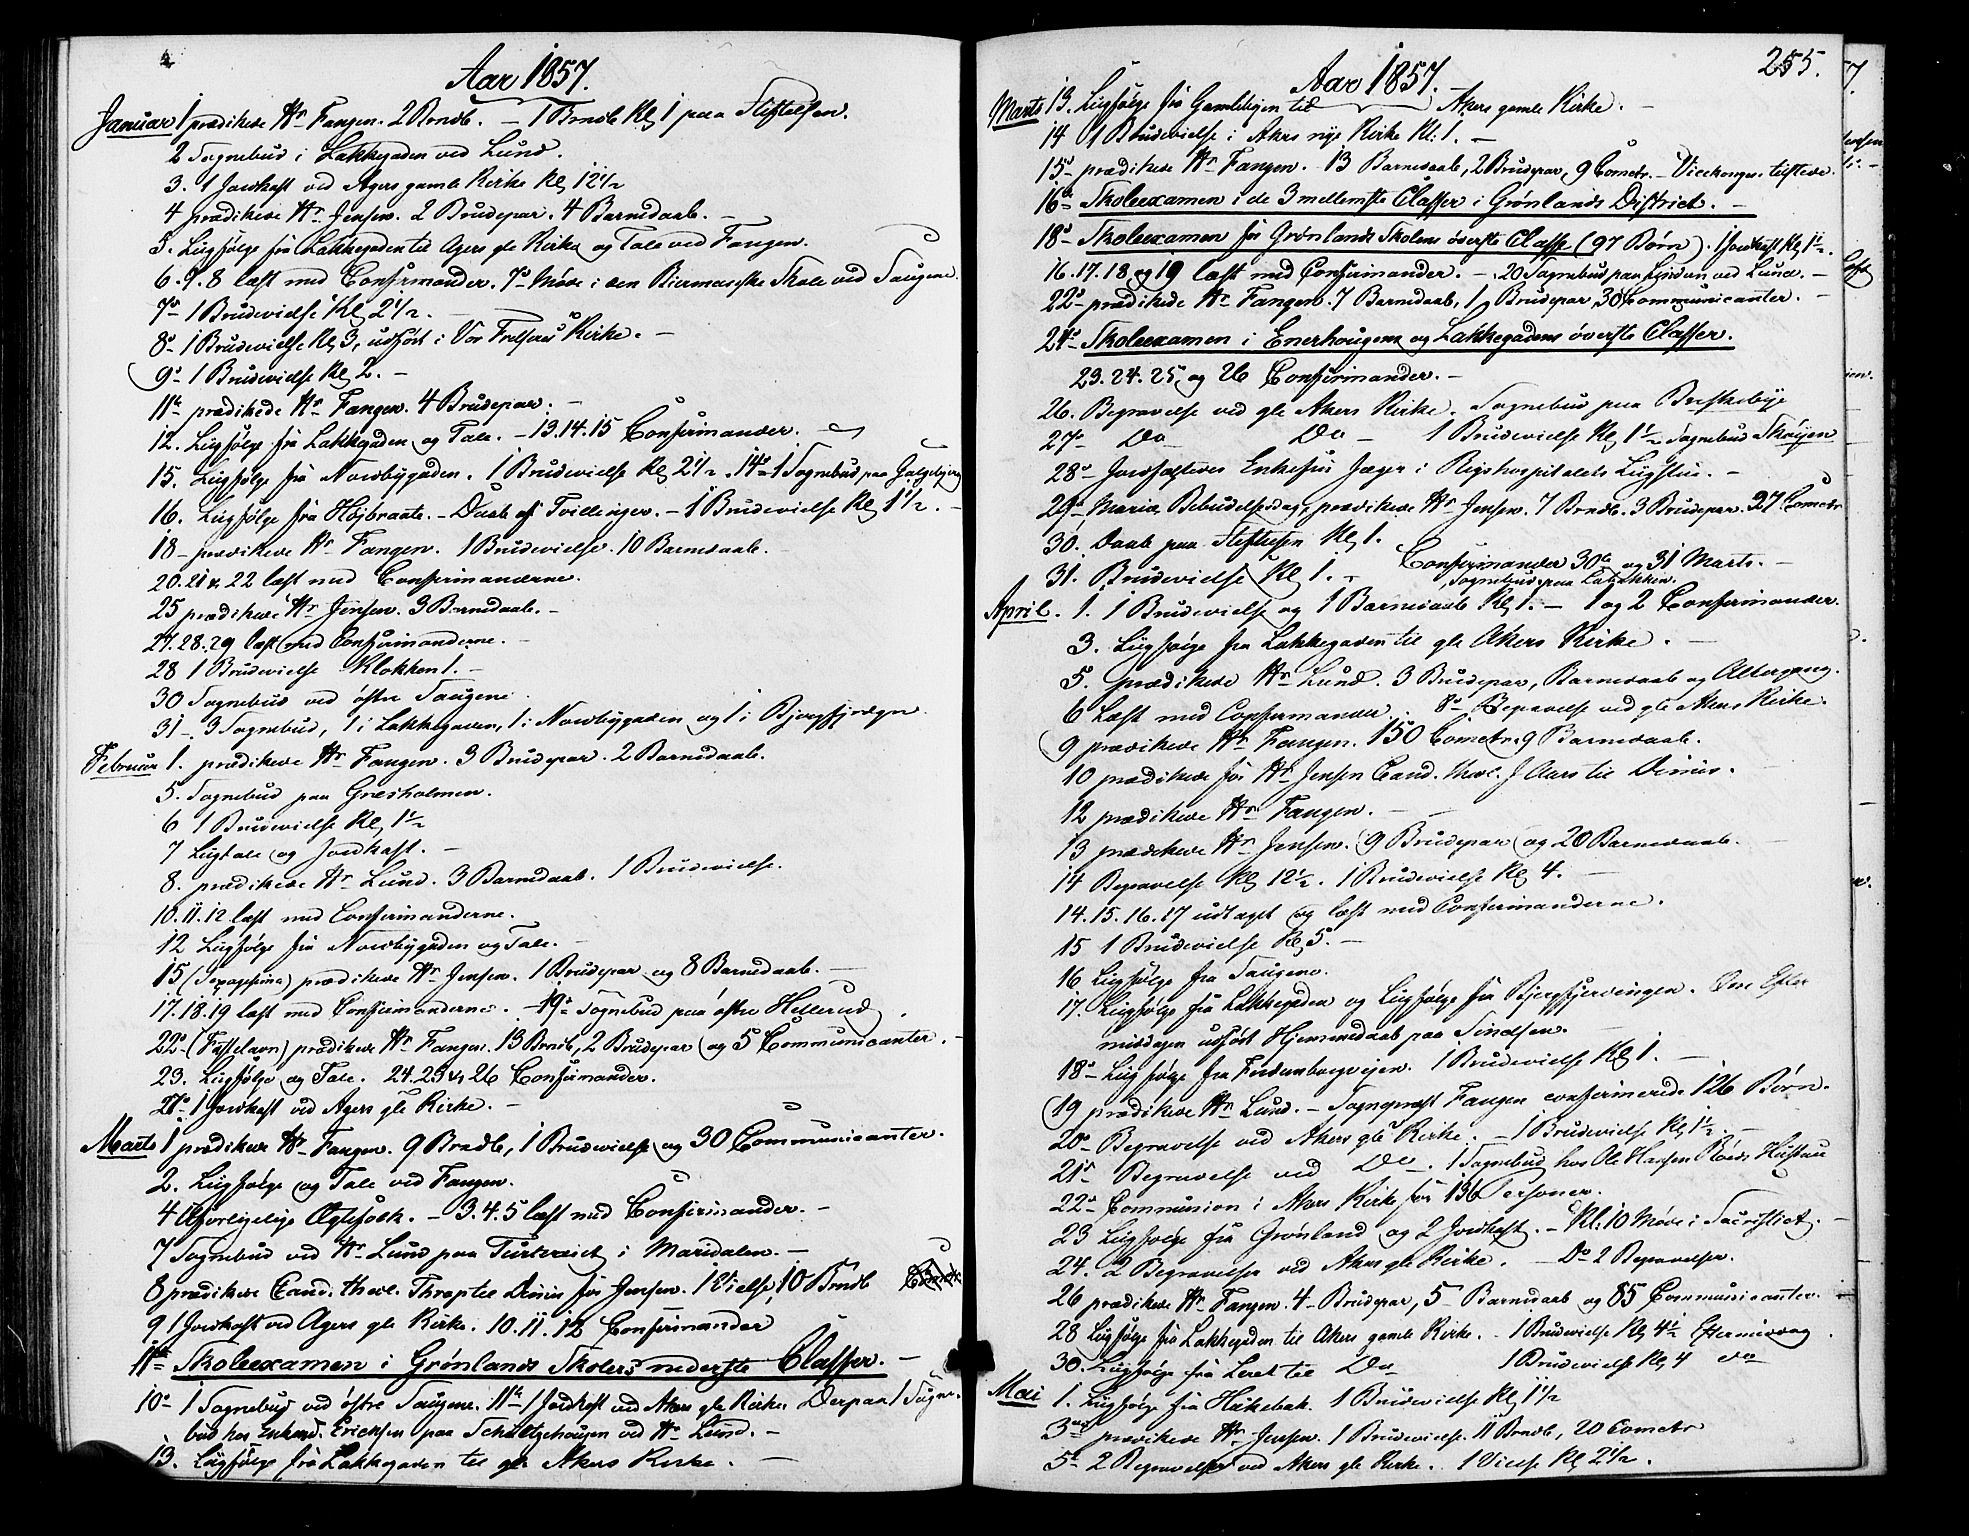 Aar 1857.
Januar 1 prædikede Hr Fangen. 2 Brndb. – 1 Brndb Kl 1 paa Stiftelsen.
2 Sognebud i Lakkegaden ved Lund.
3. 1 Jordkast ved Agers gamle Kirke Kl 12 1/2
4 prædikede Hr Jensen. 2 Brudepar. 4 Barnedaab. –
5. Liigfølge fra Lakkegaden til Agers gle Kirke og Tale ved Fangen.
6. 9. 8 læst med Confirmander. 7de Møde i den Biermanske Skole ved Saugene.
7de 1 Brudevielse Kl 2 1/2. –
8de 1 Brudevielse Kl 3, udført i Vor Frelsers Kirke. –
9de 1 Brudevielse Kl 2. –
11te prædikede Hr Fangen. 4 Brudepar. –
12. Liigfølge fra Lakkegaden og Tale. – 13. 14. 15 Confirmander.
15. Liigfølge fra Nordbygaden. 1 Brudevielse Kl 2 1/2. 14de 1 Sognebud paa Galgebjerg
16. Liigfølge fra Højbraate. – Daab af Tvillinger. – 1 Brudevielse Kl 1 1/2. –
18 – prædikede Hr Fangen. 1 Brudevielse. 10 Barnedaab.
20. 21 & 22 læst med Confirmanderne.
25 prædikede Hr Jensen. 3 Barnedaab. –
27. 28. 29 læst med Confirmanderne. –
28 1 Brudevielse Klokken 1. –
30 Sognebud ved østre Saugene.
31 – 3 Sognebud, 1 i Lakkegaden, 1 i Nordbygaden og 1 i Bjergfjerdgn.
Februar 1. prædikede Hr Fangen. 3 Brudepar. 2 Barnedaab.
5. Sognebud paa Græsholmen.
6 1 Brudevielse Kl 1 1/2
7 Liigtale og Jordkast. –
8. prædikede Hr Lund. 3 Barnedaab. 1 Brudevielse.
10. 11. 12 læst med Confirmanderne.
12 Liigfølge fra Nordbygaden og Tale. –
15 (Sexagesima) prædikede Hr Jensen. 1 Brudepar og 8 Barnedaab. –
17. 18. 19 læst med Confirmanderne. – 19de Sognebud paa østre Hellerud.
22de (Fastelavn) prædikede Hr Fangen. 13 Brndb, 2 Brudepar og 5 Communicanter. –
23. Liigfølge og Tale. 24. 25 & 26 Confirmander.
27de 1 Jordkast ved Agers gle Kirke. –
Marts 1 prædikede Hr Fangen. 9 Brndb, 1 Brudevielse og 30 Communicanter.
2. Liigfølge og Tale ved Fangen.
4 Uforligelige Ægtefolk. – 3. 4. 5 læst med Confirmander. –
7 Sognebud ved Hr Lund paa Turtvæiet i Maridalen. –
8 prædikede Cand. theol. Thrap til Dimis for Jensen. 1 Vielse, 10 Brndb
9 1 Jordkast ved Agers gle Kirke. 10. 11. 12 Confirmander
11te Skoleexamen i Grønlands Skolers nederste Classer. –
10de 1 Sognebud ved østre Saugene. 11te 1 Jordkast ved Akers gle Kirke. Derpaa 1 Sogne-
bud hos Enkmd. Ericksen paa Schultzehaugen ved Hr Lund. –
13. Liigfølge fra Lakkegaden til gle Akers Kirke. –
255.
Aar 1857.
Marts 13. Liigfølge fra Gamlebyen til Akers gamle Kirke. –
14 1 Brudevielse i Akers nye Kirke Kl. 1. –
15de prædikede Hr Fangen. 13 Barnedaab, 2 Brudepar, 9 Comctr. – Vicekongen tilstede.
16de Skoleexamen i de 3 mellemste Classer i Grønlands District. –
18de Skoleexamen for Grønlands Skolens øverste Classe (97 Børn). 1 Jordkast Kl 1 1/2.
16. 17. 18 og 19 læst med Confirmander. – 20 Sognebud paa ved Lund. –
22de prædikede Hr Fangen. 7 Barnedaab, 1 Brudepar, 30 Communicanter. –
24de Skoleexamen i Enerhougens og Lakkegadens øverste Classer.
23. 24. 25 og 26 Confirmander. –
26. Begravelse ved gle Akers Kirke. Sognebud paa Briskebye
27de Do Do – 1 Brudevielse Kl 1 1/2 Sognebud Skøyen
28de Jordfæstedes Enkefru Jæger i Rigshospitalets Liigstue. –
29de Mariæ Bebudelsesdag, prædikede Hr Jensen. 7 Brndb. 3 Brudepar. 27 Comctr
30. Daab paa Stiftelsen Kl 1.
31. Brudevielse Kl 1. – Confirmander 30te og 31 Marts. –
Sognebud paa
April. 1. 1 Brudevielse og 1 Barnedaab Kl 1. – 1 og 2 Confirmander.
3. Liigfølge fra Lakkegaden til gle Akers Kirke. –
5. prædikede Hr Lund. 3 Brudepar, Barnedaab og Altergang.
6 Læst med Confirmander. 8de Begravelse ved gle Akers Kirke.
9 prædikede Hr Fangen. 150 Comctr. 9 Barnedaab.
10 prædikede for Hr Jensen Cand. theol. J Aars til Dimis. –
12 prædikede Hr Fangen. –
13 prædikede Hr Jensen. 9 Brudepar og 20 Barnedaab. –
14 Begravelse Kl 12 1/2. 1 Brudevielse Kl 4. –
14. 15. 16. 17 udtaget og læst med Confirmanderne.
15 1 Brudevielse Kl 5. –
16 Liigfølge fra Saugene.
17. Liigfølge fra Lakkegaden og Liigfølge fra Bjergfjerdingen. Om Efter
middagen udført Hjemmedaab paa Tindsen. –
18de Liigfølge fra Fredensborgveien. 1 Brudevielse Kl 1. –
19 prædikede Hr Lund. – Sognepræst Fangen confirmerede 126 Børn.
20de Begravelse ved Akers gle Kirke. – 1 Brudevielse Kl 1 1/2. –
21de Begravelse ved Do. 1 Sognebud hos Ole Hansen Røeds Hustru
22de Communion i Akers Kirke for 136 Personer.
23 Liigfølge fra Grønland og 2 Jordkast. – Kl. 10 Møde i Sacristiet. –
24. 2 Begravelser ved Akers gle Kirke. – Do 2 Begravelser.
26 prædikede Hr Fangen. 4 Brudepar, 5 Barnedaab og 85 Communicanter. –
28 Liigfølge fra Lakkegaden til Akers gamle Kirke. – 1 Brudevielse Kl 4 1/2 Eftermiddag.
30. Liigfølge fra Leret til Do 1 Brudevielse Kl 4 do
Mai 1. Liigfølge fra Hakebak. 1 Brudevielse Kl 1 1/2
3die prædikede Hr Jensen. 1 Brudevielse. 11 Brndb, 20 Comctr
5te 2 Begravelser ved Akers gle Kirke. 1 Vielse Kl 2 1/2.